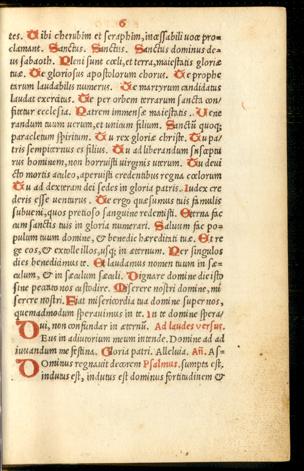 6
tes. Tibi cherubim et seraphim, incessabili voce pro⸗
clamant. Sanctus. Sanctus. Sanctus dominus de⸗
us sabaoth. Pleni sunt cœli, et terra, maiestatis gloriæ
tuæ. Te gloriosus apostolorum chorus. Te prophe
tarum laudabilis numerus. Te martyrum candidatus
laudat exercitus. Te per orbem terrarum sancta con/
fitetur ecclesia. Patrem immensæ maiestatis. Vene
randum tuum verum, et unicum filium. Sanctū quoq;
paracletum spiritum. Tu rex gloriæ christe. Tu pa/
tris sempiternus es filius. Tu ad liberandum suscœptu
rus hominem, non horruisti virginis uterum. Tu devi
cto mortis aculeo, aperuisti credentibus regna cœlorum
Tu ad dexteram dei sedes in gloria patris. Iudex cre
deris esse venturus. Te ergo quæsumus tuis famulis
subveni, quos pretioso sanguine redemisti. Eterna fac
cum sanctis tuis in gloria numerari. Salvum fac po⸗
pulum tuum domine, & benedic hæreditati tuæ. Et re
ge eos, & extolle illos, usq; in æternum. Per singulos
dies benedicimus te. Et laudamus nomen tuum in sæ⸗
culum, & in sæculum sæculi. Dignare domine die isto
sine peccato nos custodire. Miserere nostri domine, mi
serere nostri. Fiat misericordia tua domine super nos,
quemadmodum speravimus in te. In te domine spera/
vi, non confundar in æternū. Ad laudes versus.
Deus in adiutorium meum intende. Domine ad ad
iuvandum me festina. Gloria patri. Alleluia. Añ. As⸗
Dominus regnavit decorem Psalmus. sumpta est.
indutus est, indutus est dominus fortitudinem &